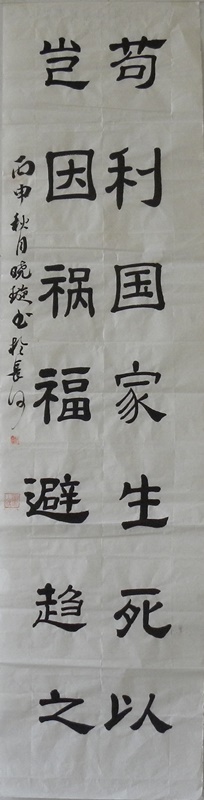 苟利国家生死以
岂因祸福避趋之
丙申秋月晓璇书于长沙